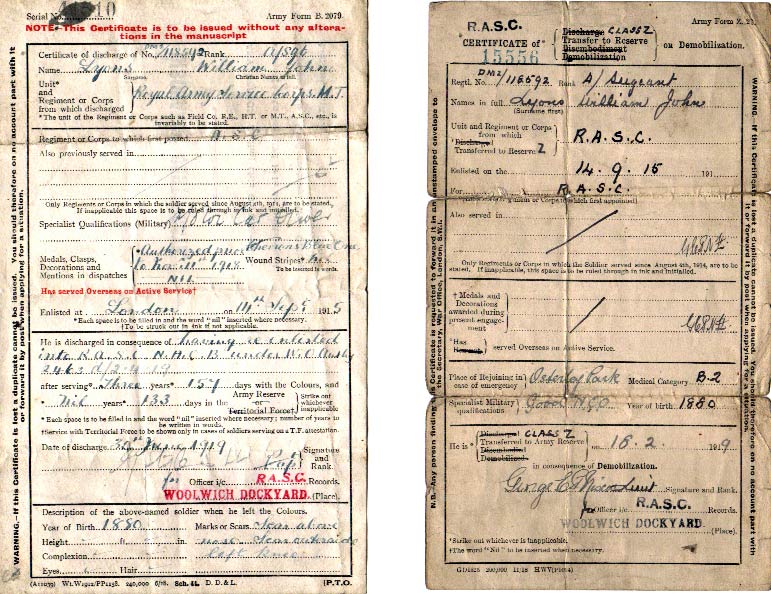 Serial No. 10
Army Form B. 2079.
NOTE:-This Certificate is to be issued without any altera-
tions in the manuscript
Certificate of discharge of No. Rank A/Sgt
Name Lyons William John
Surname Christian Names in full
Unit*
and
Regiment or Corps
from which discharged
Royal Army Service Corps. M.T.
*The unit of the Regiment or Corps such as Field Co. R.E., H.T. or M.T., A.S.C., etc., is
invariably to be stated.
Regiment or Corps to which first posted A.S.C.
Also previously served in
Only Regiments or Corps in which the soldier served since August 4th, 1914, are to be stated,
If inapplicable this space is to be ruled through in ink and initialled.
Specialist Qualifications (Military) Motor Car Driver
Medals, Clasps,
Decorations and
Mentions in dispatches
Authorized prior
to 1918
Nil
Wound Stripes* Nil
To be inserted in words.
Has served Overseas on Active Service†
Enlisted at London on 14th Sept 1915
*Each space is to be filled in and the word "nil" inserted where necessary.
†To be struck out in ink if not applicable.
He is discharged in consequence of having re enlisted
into R.A.S.C. under
after serving* Three years* 157 days with the Colours, and
* nil years* 133 days in the Army Reserve
or
Territorial Force†
Strike out
whichever
inapplicable
*Each space is to be filled in and the word "nil" inserted where necessary; number of years to
be written in words.
†Service with Territorial Force to be shown only in cases of soldiers serving on a T.F. attestation.
Date of discharge 1919
Signature
and
Rank.
for Officer i/c R.A.S.C. Records.
WOOLWICH DOCKYARD. (Place).
Description of the above-named soldier when he left the Colours.
Year of Birth 1880 Marks or Scars Scar above
Height ft. in. nose. Scar outside
Complexion left knee
Eyes Hair
(A11079) Wt. W2912/PP1158. 240,000 6/18. Sch. 44. D. D. & L. (P.T.O.
WARNING.—If this Certificate is lost a duplicate cannot be issued. You should therefore on no account part with it
or forward it by post when applying for a situation.
R.A.S.C.
Army Form Z. 21.
CERTIFICATE of*
Discharge CLASS Z
Transfer to Reserve
Disembodiment
Demobilization
on Demobilization.
15556
Regtl. No. DM2/118592 Rank A/Sergeant
Names in full Lyons William John
(Surname first)
Unit and Regiment or Corps
from which
*Discharged
Transferred to Reserve Z
R.A.S.C.
Enlisted on the 14.9.15 191
For R.A.S.C.
(Regiment or Corps to which first appointed)
Also served in
Only Regiments or Corps in which the Soldier served since August 4th, 1914, are to be
stated. If inapplicable, this space is to be ruled through in ink and initialled.
†Medals and
Decorations
awarded during
present engage-
ment
*Has
served Overseas on Active Service.
Place of Rejoining in
case of emergency
Osterley Park
Medical Category B.2
Specialist Military
qualifications
Good N.C.O
Year of birth 1880
He is*
Discharged CLASS Z
Transferred to Army Reserve
Disembodied
Demobilized
on 16.2. 1919
in consequence of Demobilization.
Signature and Rank.
Officer i/c R.A.S.C. Records.
WOOLWICH DOCKYARD (Place).
*Strike out whichever is inapplicable.
†The word "Nil" to be inserted when necessary.
200,000 11/18 HWV
WARNING.—If this Certificate is lost a duplicate cannot be issued. You should therefore on no account part with
it or forward it by post when applying for a situation.
N.B.—Any person finding this Certificate is requested to forward it in an unstamped envelope to
the Secretary, War Office, London, S.W.1.